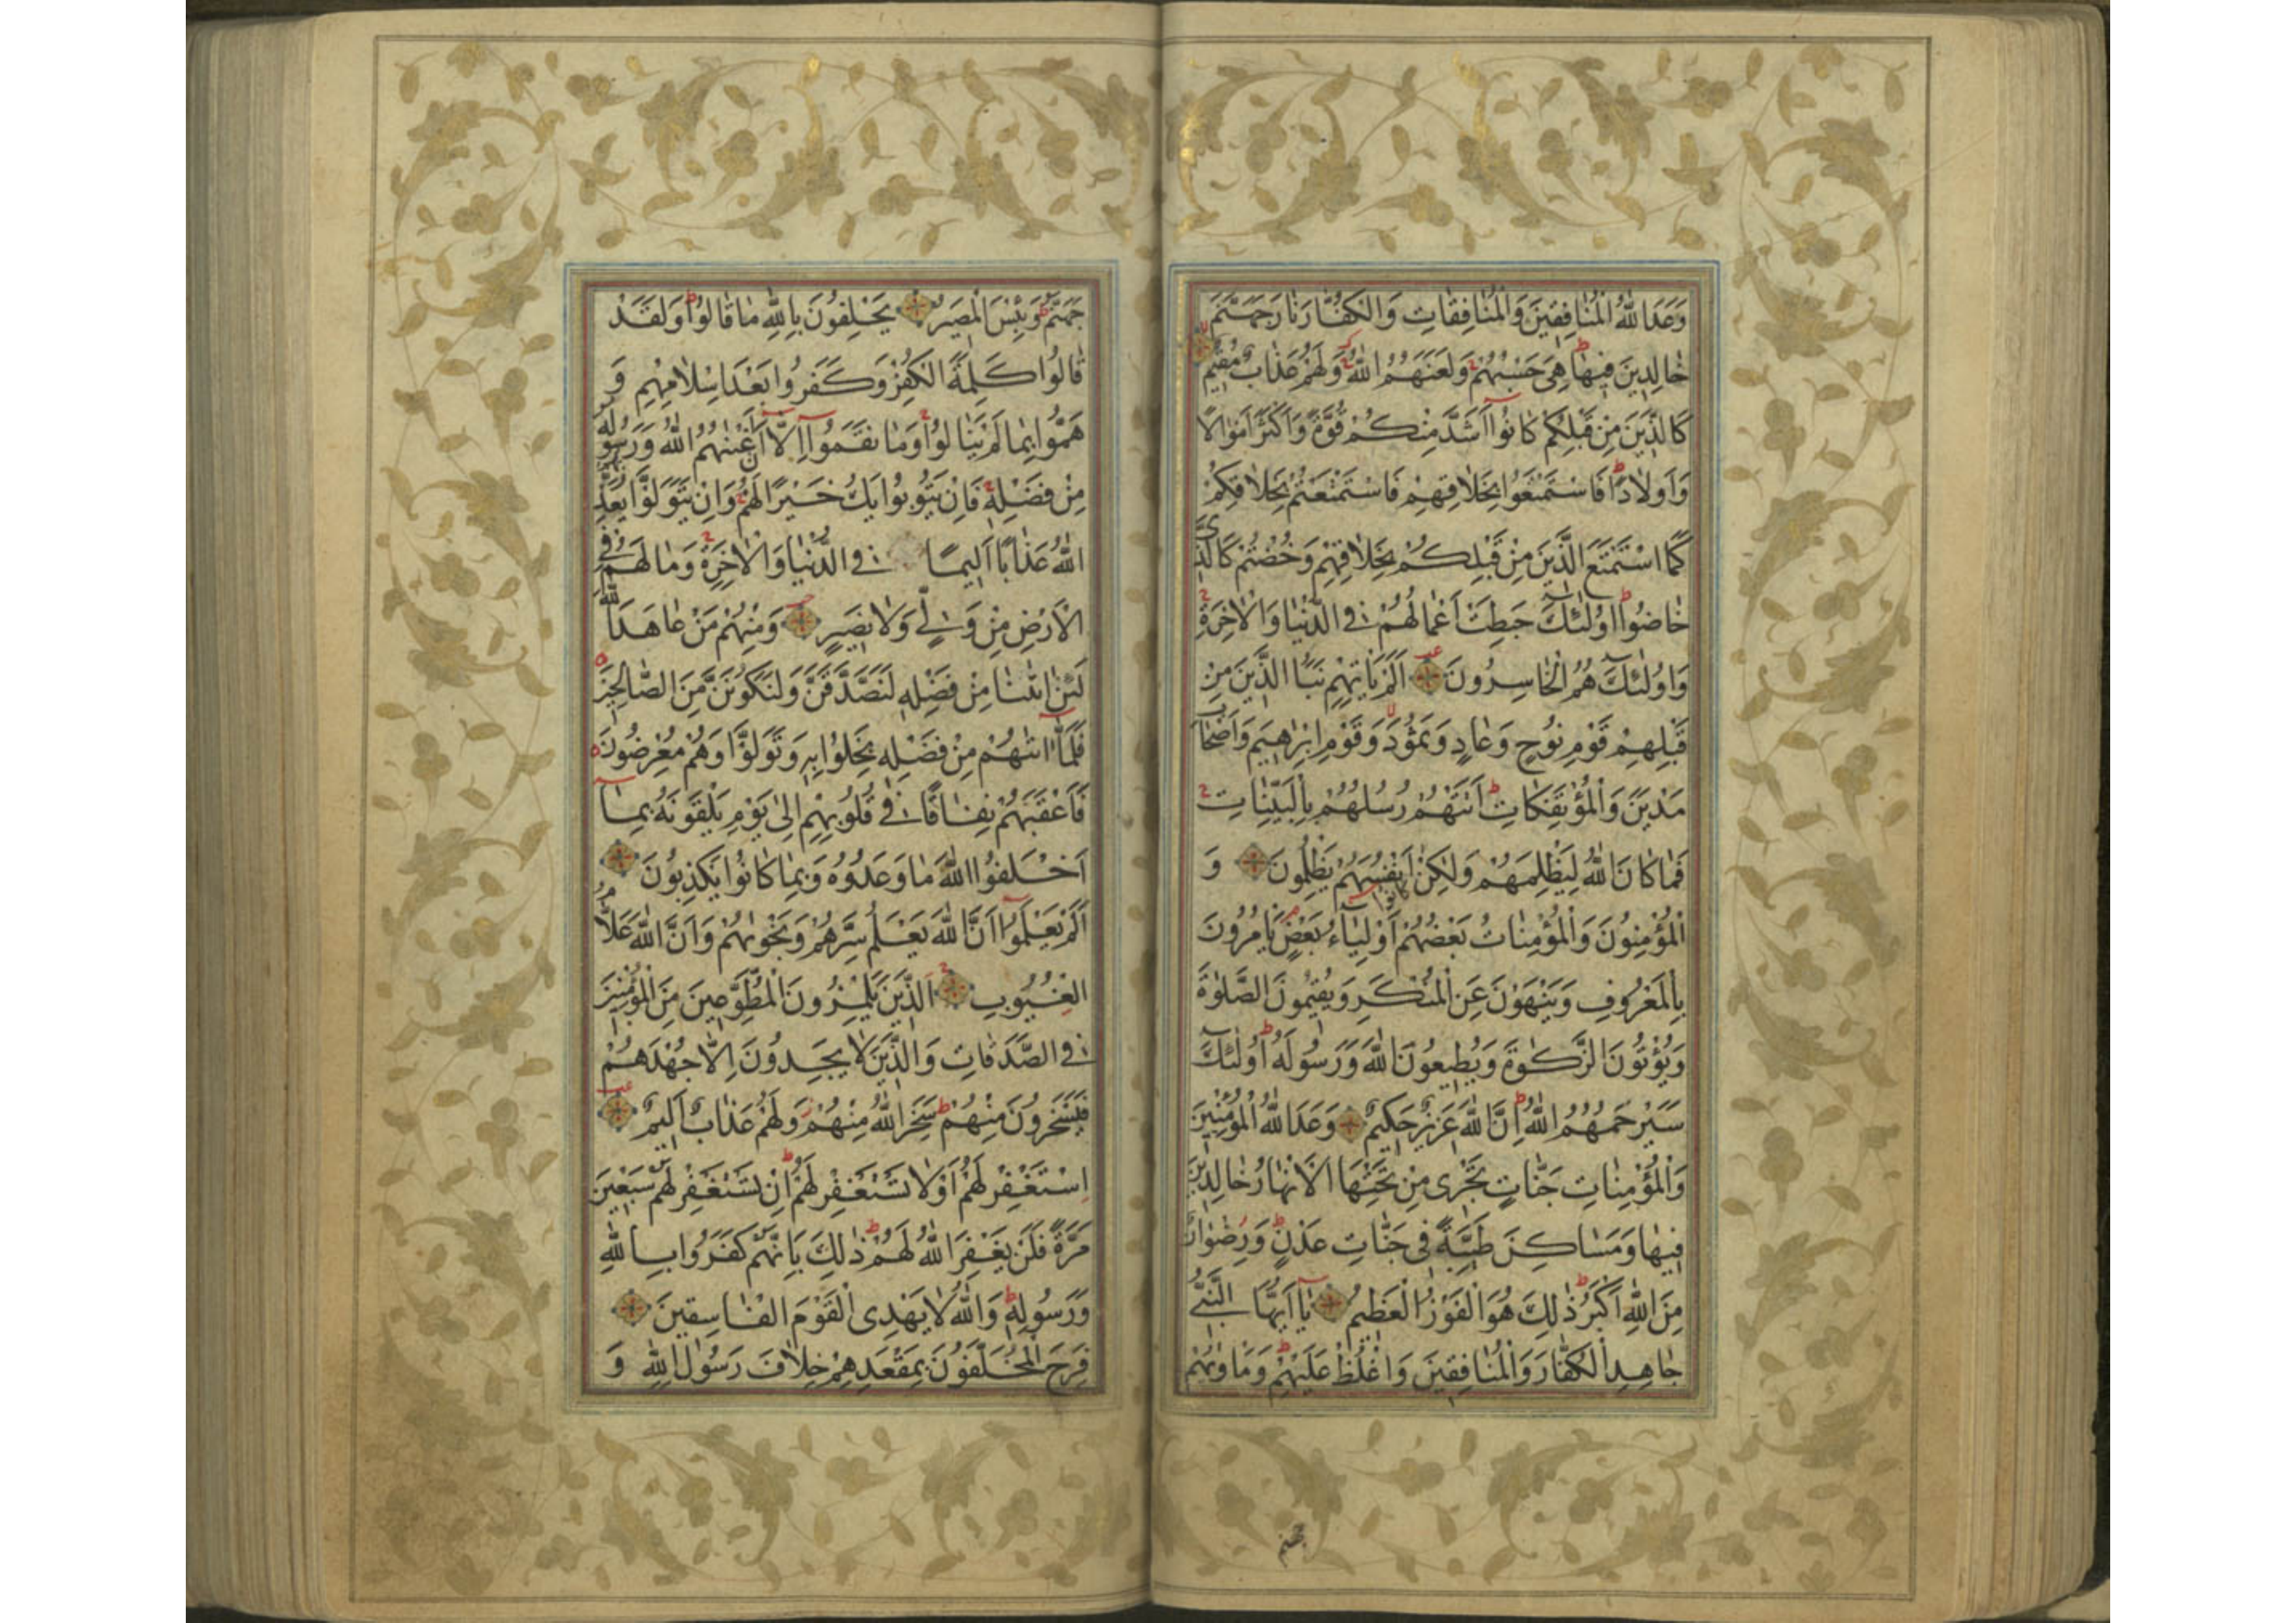 وَعَدَ اللّٰهُ الْمُنٰافِقينَ وَالْمُنٰافِقٰاتِ وَالْكُفّٰارَ نٰارَ جَهَنَّمَ
خٰالِدينَ فيهٰا هِىَ حَسْبُهُمْ وَلَعَنَهُمُ اللّٰهُ وَلَهُمْ عَذٰابٌ مُقيمٌ
كَالَّذينَ مِنْ قَبْلِكُمْ كٰانُوا اَشَدَّ مِنْكُمْ قُوَّةً وَاَكْثَرَ اَمْوٰالاً
وَاَوْلاٰدًا فَاسْتَمْتَعُوا بِخَلاٰقِهِمْ فَاسْتَمْتَعْتُمْ بِخَلاٰقِكُمْ
كَمَا اسْتَمْتَعَ الَّذينَ مِنْ قَبْلِكُمْ بِخَلاٰقِهِمْ وَخُضْتُمْ كَالَّذى
خٰاضُوا اُولٰئِكَ حَبِطَتْ اَعْمٰالُهُمْ فِى الدُّنْيٰا وَالْاٰخِرَةِ
وَاُولٰئِكَ هُمُ الْخٰاسِرُونَ اَلَمْ يَاْتِهِمْ نَبَاُ الَّذينَ مِنْ
قَبْلِهِمْ قَوْمِ نُوحٍ وَعٰادٍ وَثَمُودَ وَقَوْمِ اِبْرٰهيمَ وَاَصْحٰابِ
مَدْيَنَ وَالْمُؤْتَفِكٰاتِ اَتَتْهُمْ رُسُلُهُمْ بِالْبَيِّنٰاتِ
فَمٰا كٰانَ اللّٰهُ لِيَظْلِمَهُمْ وَلٰكِنْ كٰانُوا اَنْفُسَهُمْ يَظْلِمُونَ وَ
الْمُؤْمِنُونَ وَالْمُؤْمِنٰاتُ بَعْضُهُمْ اَوْلِيٰاءُ بَعْضٍ يَاْمُرُونَ
بِالْمَعْرُوفِ وَيَنْهَوْنَ عَنِ الْمُنْكَرِ وَيُقيمُونَ الصَّلٰوةَ
وَيُؤْتُونَ الزَّكٰوةَ وَيُطيعُونَ اللّٰهَ وَرَسُولَهُ اُولٰئِكَ
سَيَرْحَمُهُمُ اللّٰهُ اِنَّ اللّٰهَ عَزيزٌ حَكيمٌ وَعَدَ اللّٰهُ الْمُؤْمِنينَ
وَالْمُؤْمِنٰاتِ جَنّٰاتٍ تَجْرى مِنْ تَحْتِهَا الْاَنْهٰارُ خٰالِدينَ
فيهٰا وَمَسٰاكِنَ طَيِّبَةً فى جَنّٰاتِ عَدْنٍ وَرِضْوٰانٌ
مِنَ اللّٰهِ اَكْبَرُ ذٰلِكَ هُوَ الْفَوْزُ الْعَظيمُ يٰا اَيُّهَا النَّبِىُّ
جٰاهِدِ الْكُفّٰارَ وَالْمُنٰافِقينَ وَاغْلُظْ عَلَيْهِمْ وَمَاْوٰيهُمْ
جهنم
جَهَنَّمُ وَبِئْسَ الْمَصيرُ يَحْلِفُونَ بِاللّٰهِ مٰا قٰالُوا وَلَقَدْ
قٰالُوا كَلِمَةَ الْكُفْرِ وَكَفَرُوا بَعْدَ اِسْلاٰمِهِمْ وَ
هَمُّوا بِمٰا لَمْ يَنٰالُوا وَمٰا نَقَمُوا اِلاّٰ اَنْ اَغْنٰيهُمُ اللّٰهُ وَرَسُولُهُ
مِنْ فَضْلِهِ فَاِنْ يَتُوبُوا يَكُ خَيْرًا لَهُمْ وَاِنْ يَتَوَلَّوْا يُعَذِّبْهُمُ
اللّٰهُ عَذٰابًا اَليمًا فِى الدُّنْيٰا وَالْاٰخِرَةِ وَمٰا لَهُمْ فِى
الْاَرْضِ مِنْ وَلِىٍّ وَلاٰ نَصيرٍ وَمِنْهُمْ مَنْ عٰاهَدَ اللّٰهَ
لَئِنْ اٰتٰينٰا مِنْ فَضْلِهِ لَنَصَّدَّقَنَّ وَلَنَكُونَنَّ مِنَ الصّٰالِحينَ
فَلَمّٰا اٰتٰيهُمْ مِنْ فَضْلِهِ بَخِلُوا بِهِ وَتَوَلَّوْا وَهُمْ مُعْرِضُونَ
فَاَعْقَبَهُمْ نِفٰاقًا فى قُلُوبِهِمْ اِلىٰ يَوْمِ يَلْقَوْنَهُ بِمٰا
اَخْلَفُوا اللّٰهَ مٰا وَعَدُوهُ وَبِمٰا كٰانُوا يَكْذِبُونَ
اَلَمْ يَعْلَمُوا اَنَّ اللّٰهَ يَعْلَمُ سِرَّهُمْ وَنَجْوٰيهُمْ وَاَنَّ اللّٰهَ عَلاّٰمُ
الْغُيُوبِ اَلَّذينَ يَلْمِزُونَ الْمُطَّوِّعينَ مِنَ الْمُؤْمِنينَ
فِى الصَّدَقٰاتِ وَالَّذينَ لاٰ يَجِدُونَ اِلاّٰ جُهْدَهُمْ
فَيَسْخَرُونَ مِنْهُمْ سَخِرَ اللّٰهُ مِنْهُمْ وَلَهُمْ عَذٰابٌ اَليمٌ
اِسْتَغْفِرْ لَهُمْ اَوْ لاٰ تَسْتَغْفِرْ لَهُمْ اِنْ تَسْتَغْفِرْ لَهُمْ سَبْعينَ
مَرَّةً فَلَنْ يَغْفِرَ اللّٰهُ لَهُمْ ذٰلِكَ بِاَنَّهُمْ كَفَرُوا بِاللّٰهِ
وَرَسُولِهِ وَاللّٰهُ لاٰ يَهْدِى الْقَوْمَ الْفٰاسِقينَ
فَرِحَ الْمُخَلَّفُونَ بِمَقْعَدِهِمْ خِلاٰفَ رَسُولِ اللّٰهِ وَ